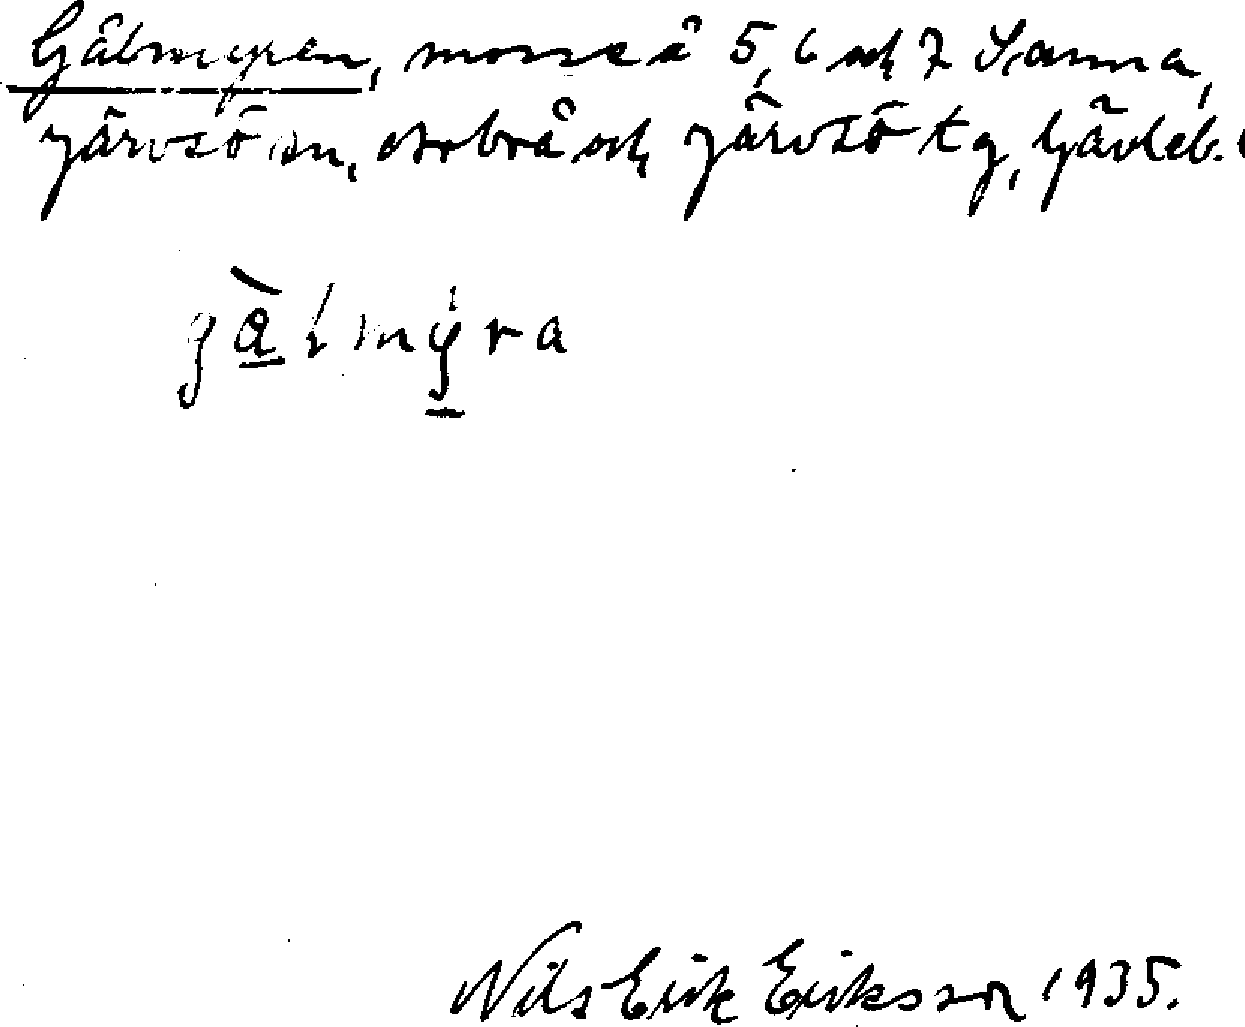 Gålmyren, mosse å 5, 6 och 7 Sanna,
Järvsö sn, Arbrå och Järvsö tg, Gävleb.
gålmyra
Nils Erik Eriksson 1935.